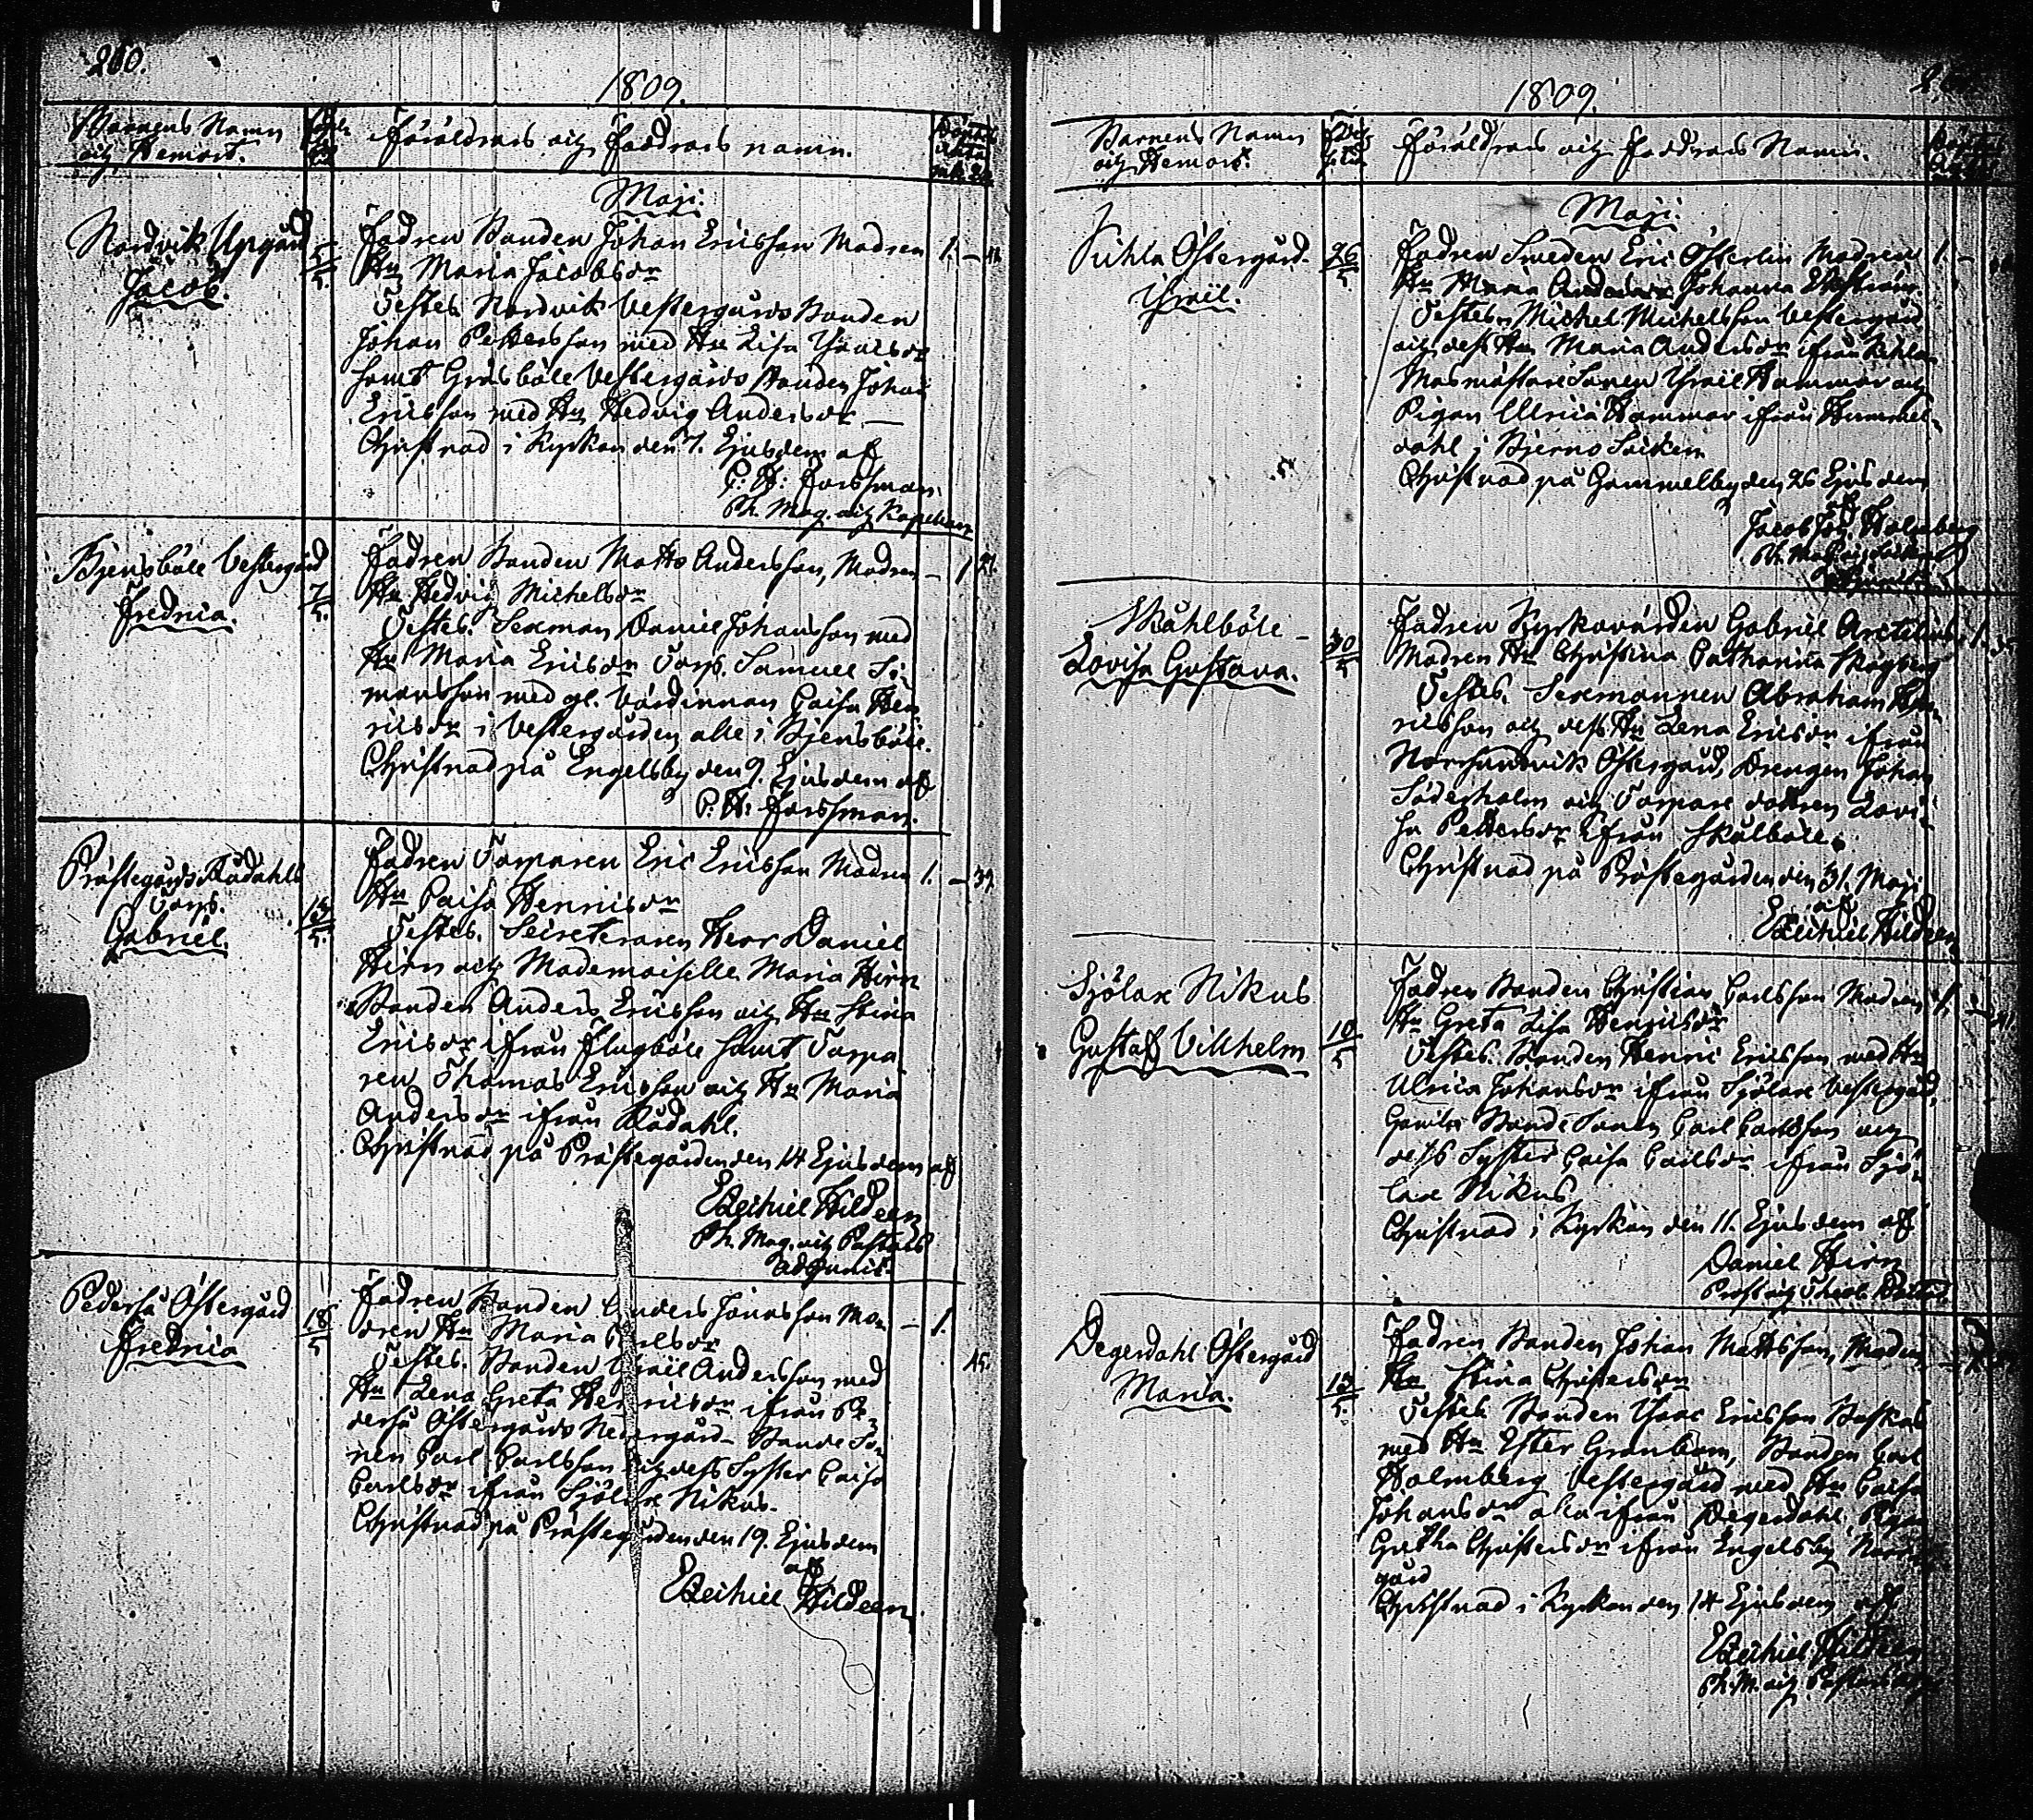 260.
1809.
Barnens Namn
och Hemort.
Föräldrars och Faddrars namn.
Maji.
Nordvik Upgård
Jacob.
5/5.
Fadren Bonden Johan Ericsson Modren
Hu Maria Jacobsdr
Testes. Nordvik Vestergårds Bonden
Johan Pettersson med Hu Lisa
samt Gräsböle Vestergårds Bonden Johan
Ericsson med Hu Hedvig Andersdr
Christnad i Kyrkan den 7. Ejusdem af
P. H. Forssman.
Ph. Mag. och Kapellan
Bjensböle Vestergård
Fredrica.
7/5.
Fadren Bonden Matts Andersson, Modren
Hu Hedvig Michelsdr
Testes. Sexman Daniel Johansson med
Hu Maria Ericsdr Torp. Samuel Si-
monsson med gl. Värdinnan Caisa Hen
ricsdr i Vestergården alle i Bjensböle.
Christnad på Engelsby den 9. Ejusdem af
P. H. Forssman.
Prästegårds Rådahls
Torp.
Gabriel.
13/5.
Fadren Torparen Eric Ericsson Modren 1. – 39.
Hu Caisa Henricsdr
Testes. Secreteraren Herr Daniel
Hirn och Mademoiselle Maria Hirn
Bonden Anders Ericsson och Hu Stina
Ericsdr ifrån Flugböle samt Torpa
ren Thomas Ericsson och Hu Maria
Andersdr ifrån Rådahl.
Christnad på Prästegården den 14 Ejusdem af
Ezechiel Hildeen
Ph. Mag. och Pastors
Adjunct.
Pederså Östergård
Fredrica
18/5
Fadren Bonden Anders Jonasson Mo-
dren Hu Maria
Testes. Bonden Israel Andersson med
Hu Lena Greta Henricsdr ifrån Pe-
derså Östergårds Bonde So-
nen Carl Carlsson och dess Syster Caisa
Carlsdr ifrån Sjölax Nikus.
Christnad på Prästegården den 19. Ejusdem
af
Ezechiel Hildeen.
1809.
Barnens Namn
och Hemort.
Föräldrars och Faddrars Namn.
Maji.
Östergård
Israel.
26/5
Fadren Smeden Eric Österlin Modren
Hu Maria Johanna
Testes. Michel Michelsson Vestergård
och dess Hu Maria Andersdr ifrån
Masmästare Sonen Israel Hammar och
Pigan Ulrica Hammar ifrån Hummel-
dahl i Bjerno Socken
Christnad på Gammelby den 26 Ejusdem
af
Holmberg
Skålböle
Lovisa Gustava.
30/5
Fadren Kyrkovärden Gabriel
Modren Hu Christina Catharina Skogberg
Testes. Sexmannen Abraham Hen-
ricsson och dess Hu Lena Ericsdr ifrån
Östergård, Drengen Johan
Söderholm och Torpare dottren Lovi-
sa Pettersdr ifrån Skålböle.
Christnad på Prästegården den 31. Maji
af
Ezechiel Hildeen
Sjölax Nikus
Gustaf Vilhelm
10/5
Fadren Bonden Christian Carlsson Modren
Hu Greta Lisa Henricsdr
Testes. Bonden Henric Ericsson med Hu
Ulrica Johansdr ifrån Sjölax Vestergård,
Bonde Sonen Carl Carlsson och
dess Syster Caisa Carlsdr ifrån Sjö-
lax Nikus
Christnad i Kyrkan den 11. Ejusdem af
Daniel Hirn
Prost och Theol. Doctor
Degerdahl Östergård
Maria.
13/5.
Fadren Bonden Johan Mattsson, Modren
Hu Stina Christersdr
Testes Bonden Isaac Ericsson
med Hu Ester Bonden Carl
Holmberg Vestergård med Hu Caisa
Johansdr alla ifrån Degerdahl, Pigan
Gretha Christersdr ifrån Engelsby
gård
Christnad i Kyrkan den 14 Ejusdem af
Ezechiel Hildeen
Ph. M. och Pastors